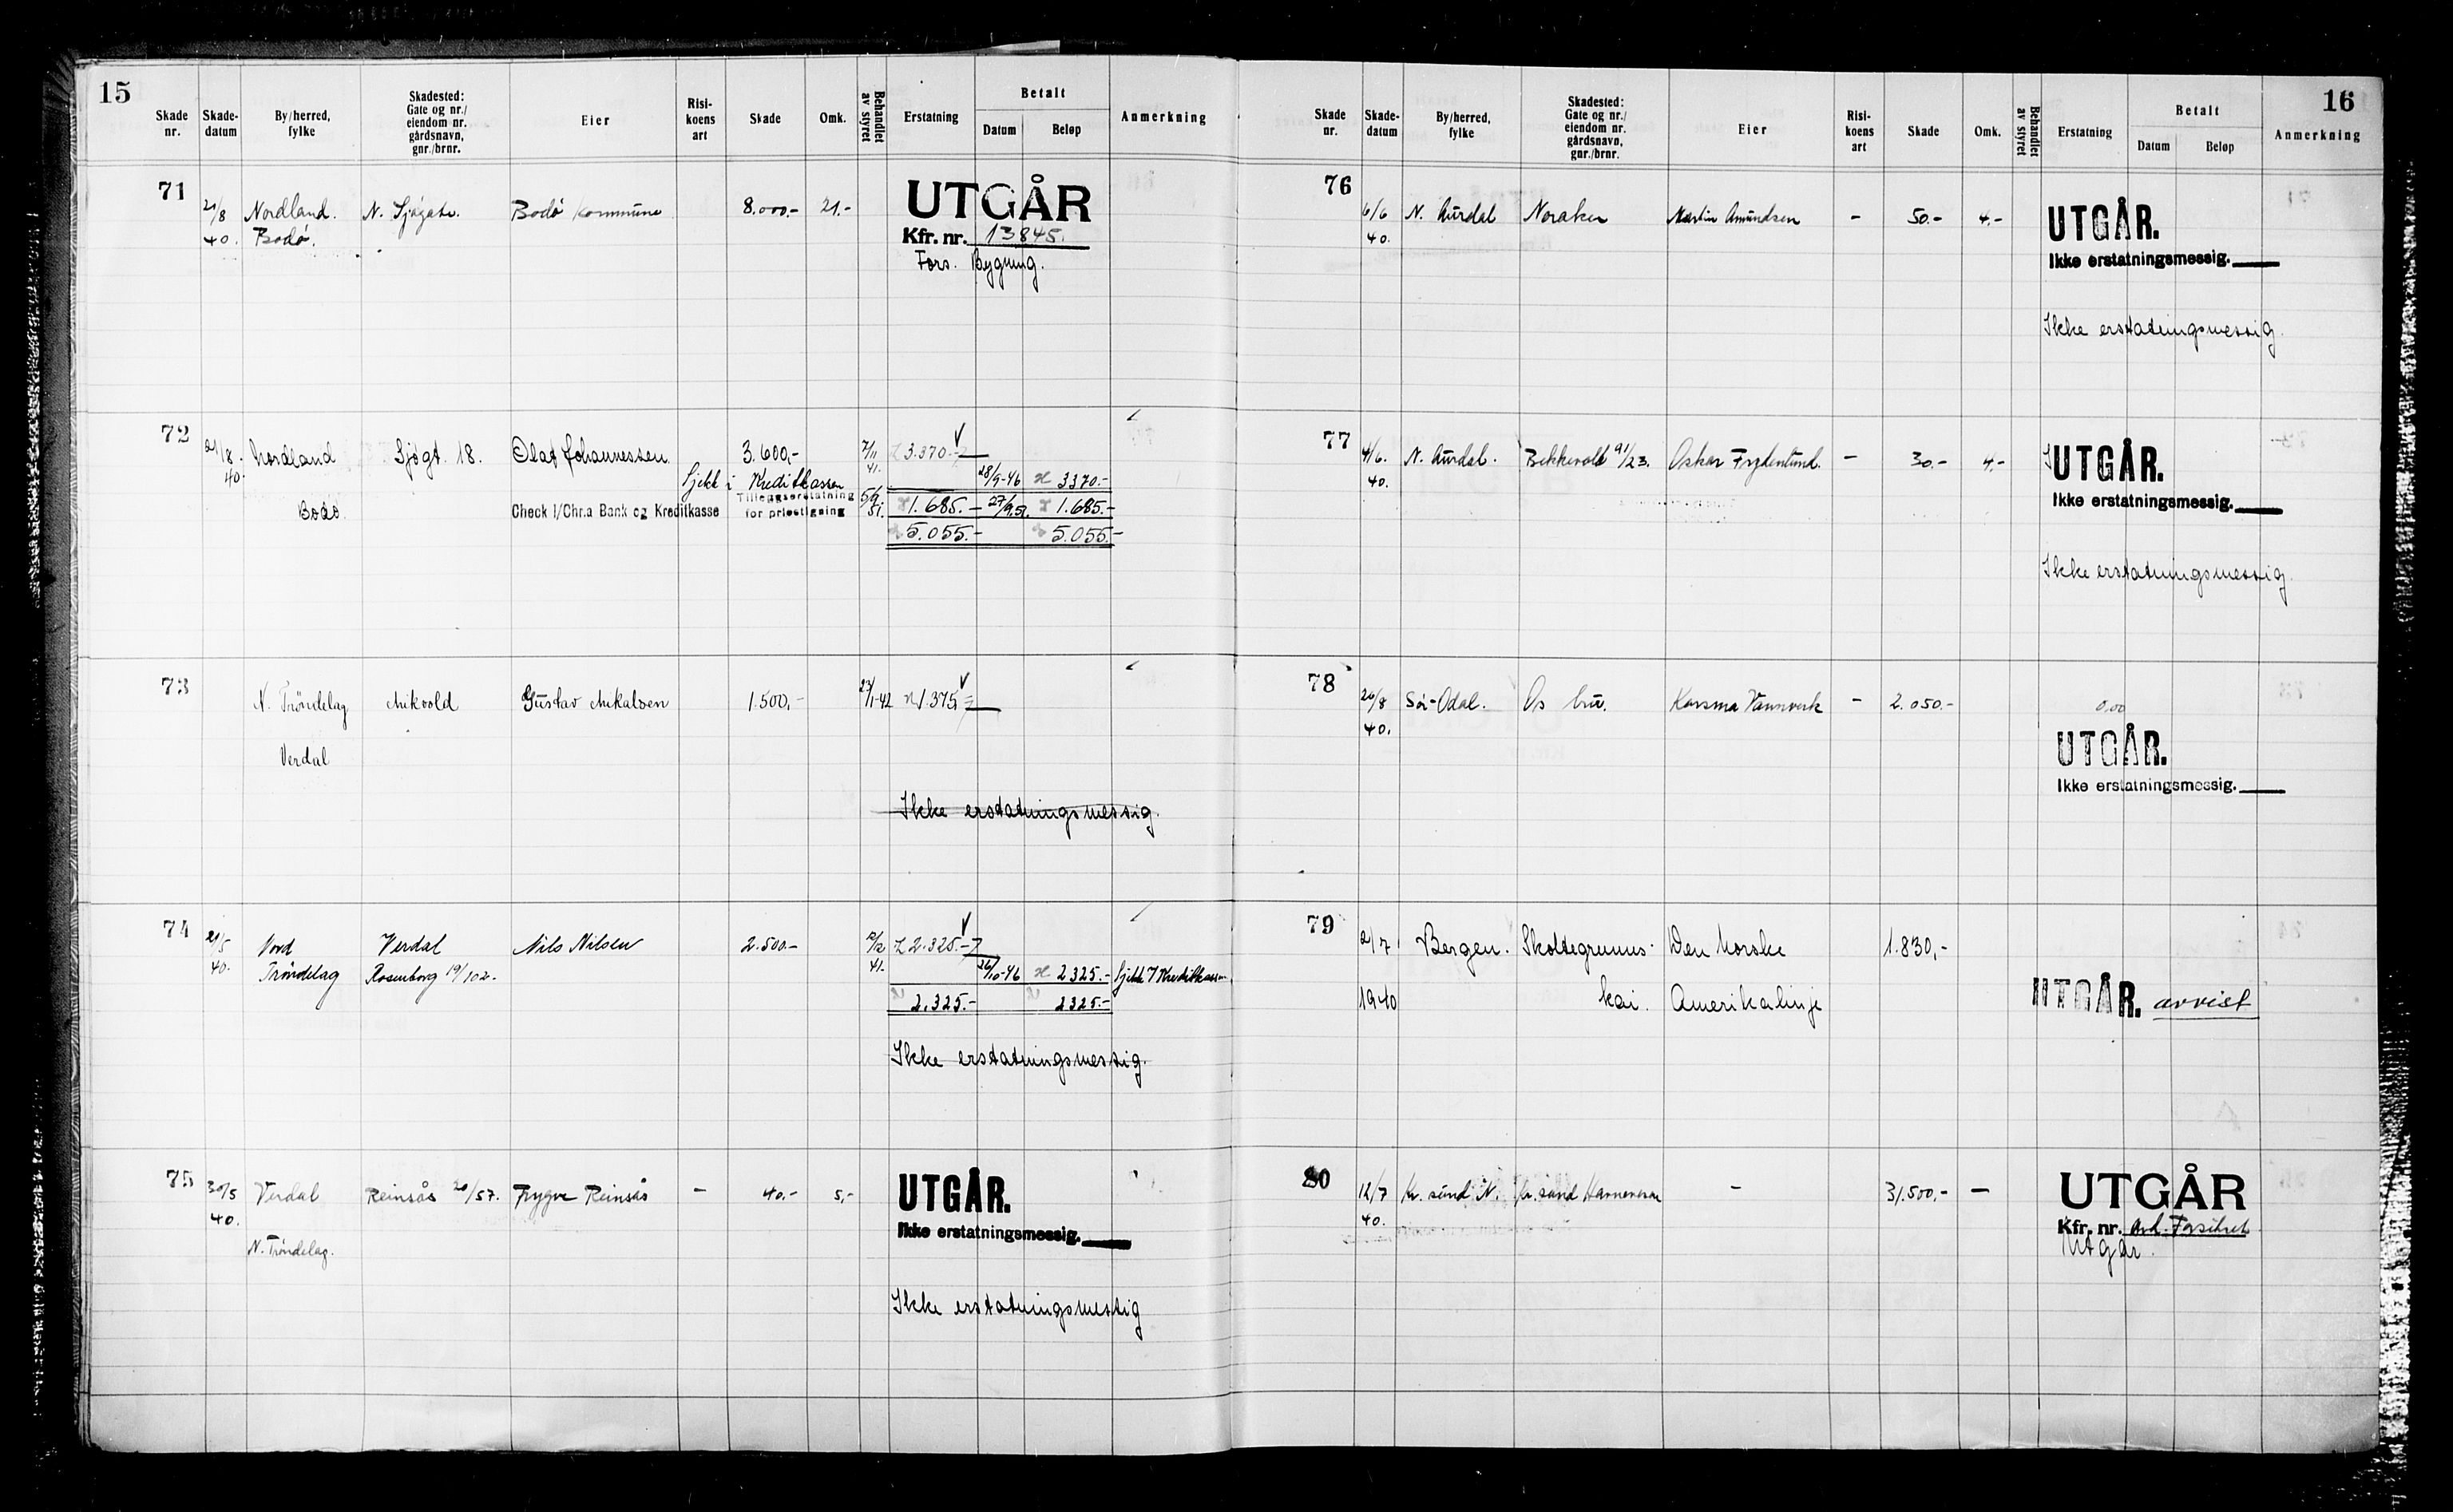 15
Skade nr.
Skade-datum
By/herred, fylke
Skadested: Gate og nr./ eiendom nr. gårdsnavn, gnr./brnr.
Eier
Risi-koens art
Skade
Omk.
Behandlet av styret
Erstatning
Betalt
Datum
Beløp
Anmerkning
71
21/8 Nordland. N. Sjøgate. Bodø kommune 8.000.- 21.- UTGÅR
40. Bodø. Kfr. nr. 13845.
Fors. Bygning.
72
21/8. Nordland Sjøgt. 18. Olaf Johannessen 3.600,- 7/11 3.370.-
40. Sjekk i Kreditkassen 41. 28/9-46 3370.-
Bodø. Check i/Chr.a Bank og Kreditkasse Tilleggserstatning for prisstigning 5/9. 51. 1.685.- 27/9.51. 1.685.-
5.055.- 5.055.-
73
N. Trøndelag Mikvold Gustav Mikalsen 1.500,- 1-42 1.375,-
Verdal
Ikke erstatningsmessig.
74
21/5 Nord Verdal Nils Nilsen 2.500.- 2.325.-
40. Trøndelag Rosenborg 19/102. 41. 26/10-46 2325.- Sjekk Kreditkassen
2.325.- 2325.-
Ikke erstatningsmessig.
75
30/5 Verdal Reinsås 20/57. Trygve Reinsås - 40.- 5,- UTGÅR.
40. Ikke erstatningsmessig.
N. Trøndelag.
Ikke erstatningsmessig
16
Skade nr.
Skade-datum
By/herred, fylke
Skadested: Gate og nr./ eiendom nr. gårdsnavn, gnr./brnr.
Eier
Risi-koens art
Skade
Omk.
Behandlet av styret
Erstatning
Betalt
Datum
Beløp
Anmerkning
76
6/6 N. Aurdal Noraker Martin Amundsen - 50.- 4.- UTGÅR.
40. Ikke erstatningsmessig.
Ikke erstatningsmessig.
77
4/6. N. Aurdal. Bekkevold 91/23. Oskar Frydenlund. - 30.- 4.- UTGÅR.
40. Ikke erstatningsmessig.
Ikke erstatningsmessig.
78
26/8 Sør-Odal. Os bru. Korsmo Vannverk - 2.050.- 0,00
40. UTGÅR.
Ikke erstatningsmessig.
79
2/7 Bergen. Skoltegrunns- Den Norske 1.830,-
1940 kai. Amerikalinje UTGÅR. avvist
80
12/7 Kr. sund N. Kr. sund Havnevesen - 31.500,- - UTGÅR
40. Kfr. nr. Forsikret
Utgår.